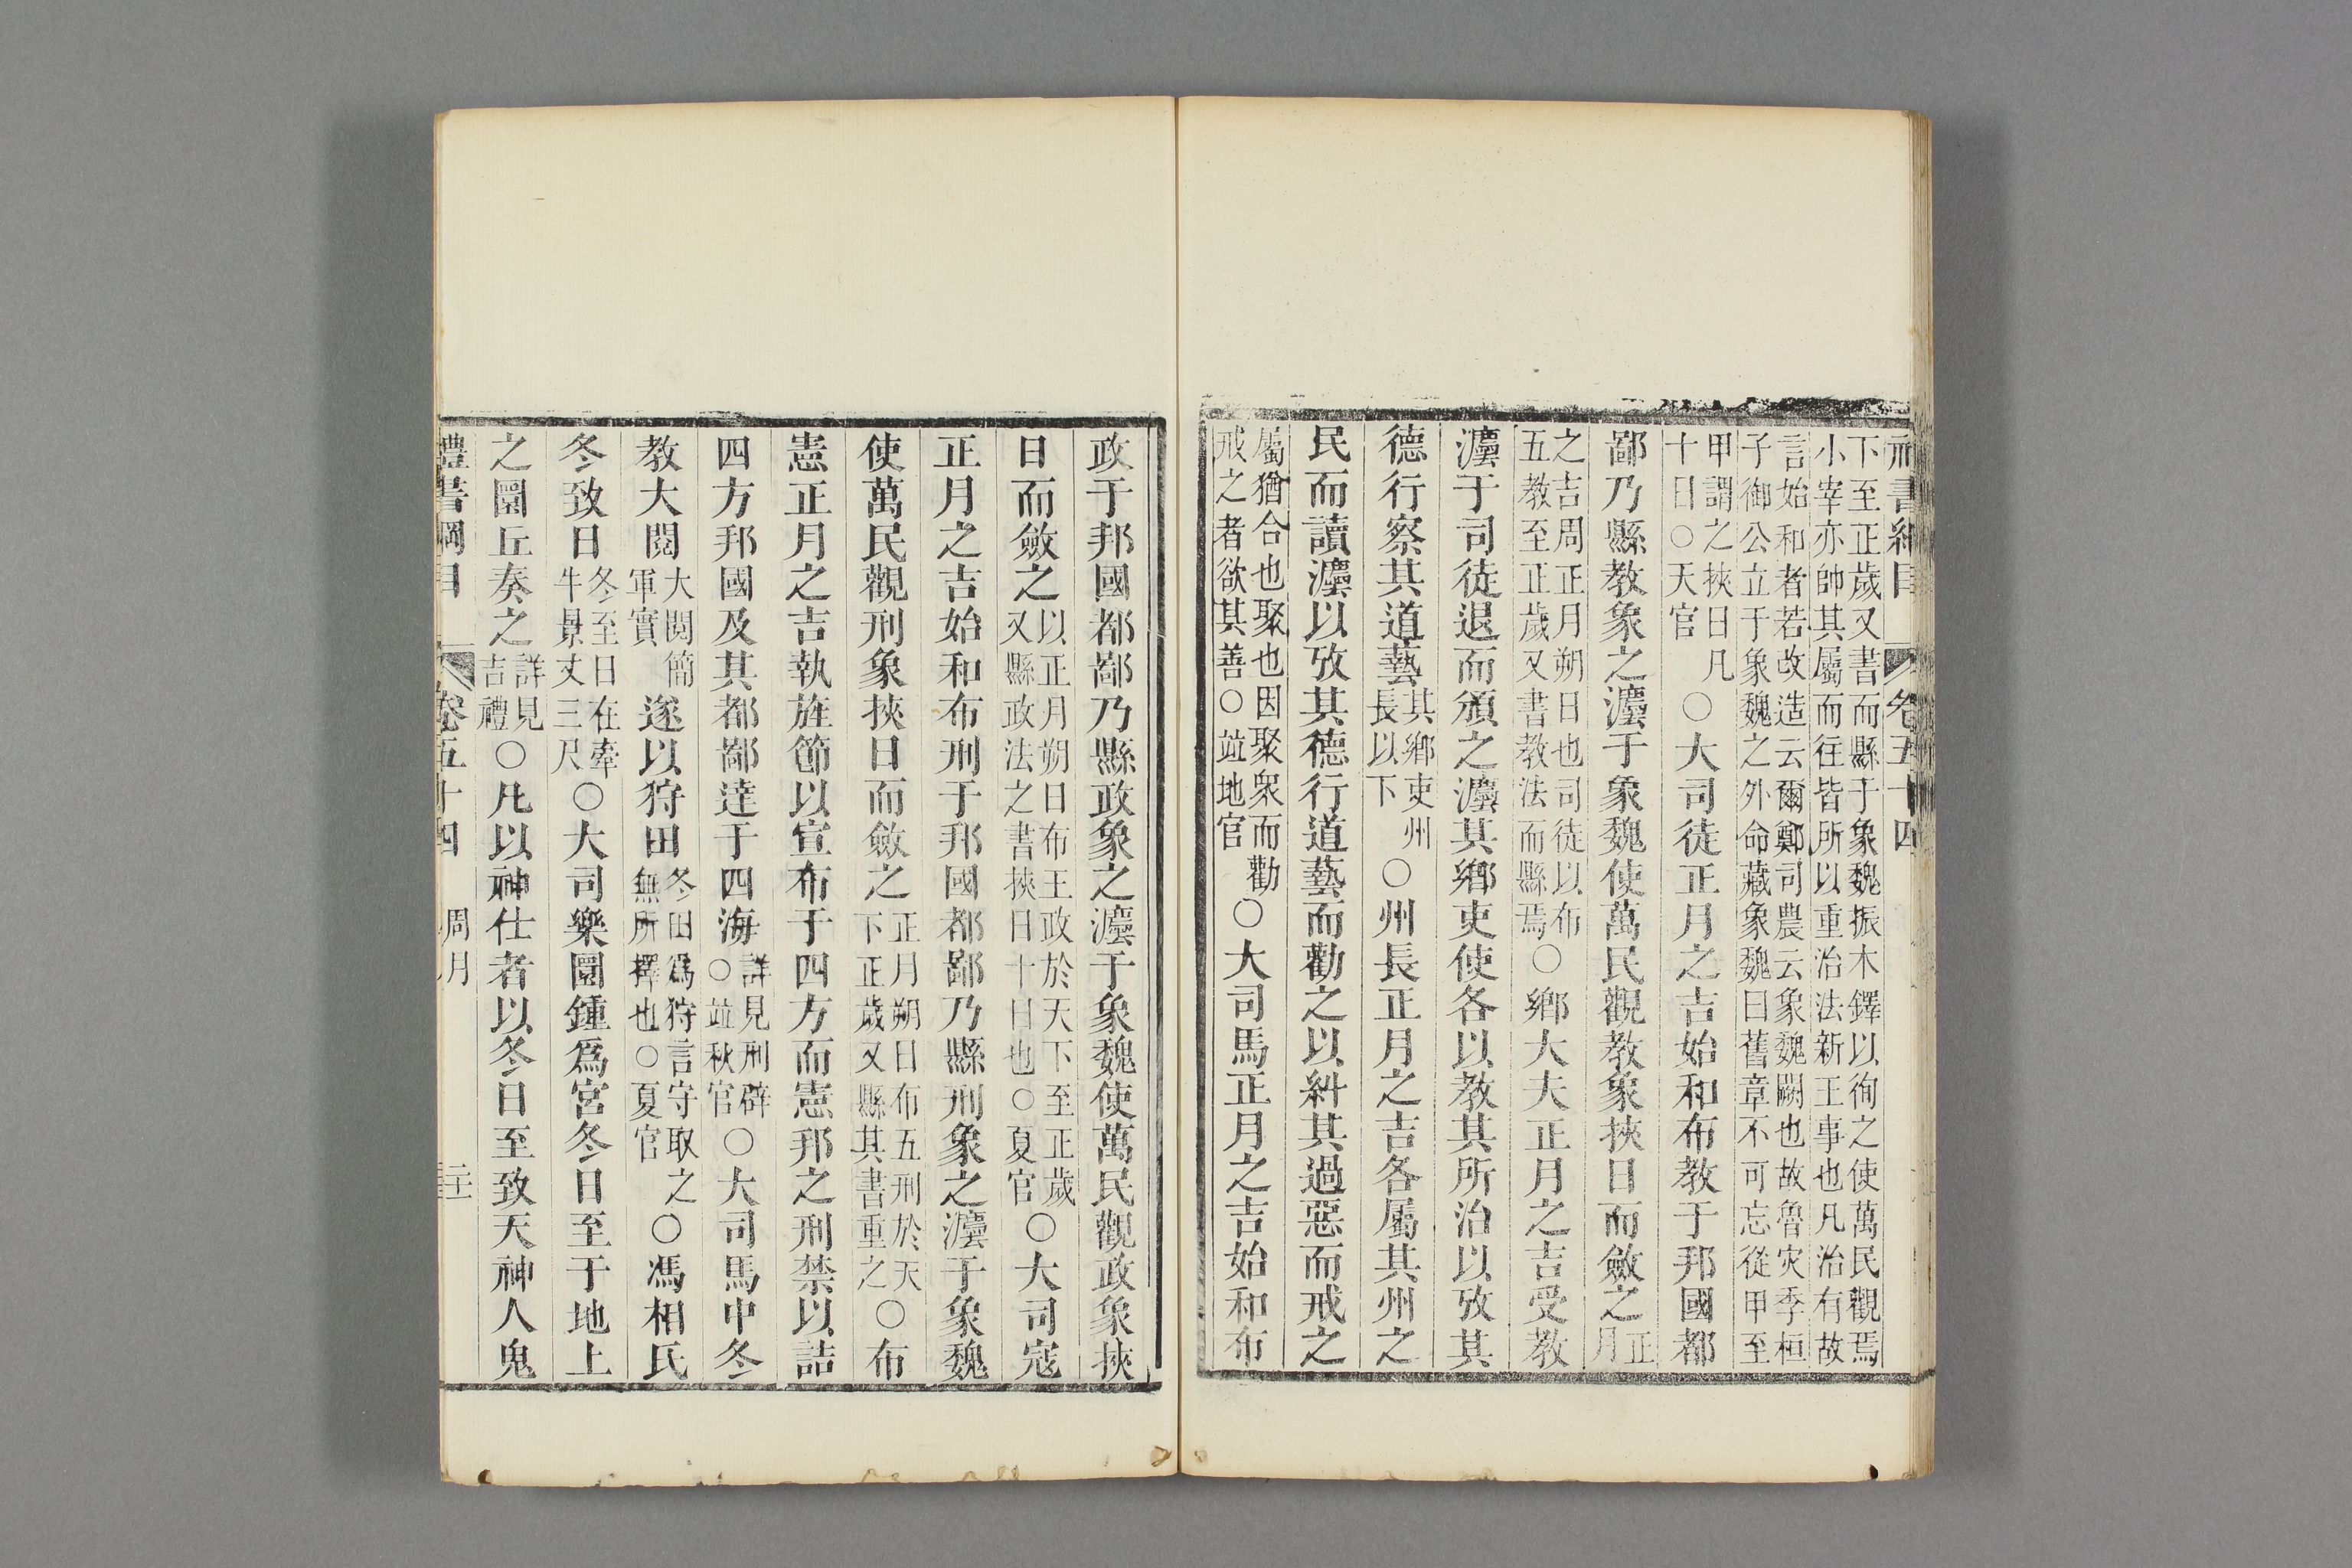 禮書綱目 卷五十四
下至正歲又書而縣于象魏振木鐸以徇之使萬民觀焉
小宰亦帥其屬而往皆所以重治法新王事也凡治有故
言始和者若改造云爾鄭司農云象魏闕也故魯災季桓
子御公立于象魏之外命藏象魏曰舊章不可忘從甲至
甲謂之挾日凡
十日○天官
○大司徒正月之吉始和布教于邦國都
鄙乃縣教象之灋于象魏使萬民觀教象挾日而斂之
正
月
之吉周正月朔日也司徒以布
五教至正歲又書教法而縣焉
○鄉大夫正月之吉受教
灋于司徒退而頒之灋其鄉吏使各以教其所治以攷其
德行察其道藝
其鄉吏州
長以下
○州長正月之吉各屬其州之
民而讀灋以攷其德行道藝而勸之以糾其過惡而戒之
屬猶合也聚也因聚衆而勸
戒之者欲其善○竝地官
○大司馬正月之吉始和布
政于邦國都鄙乃縣政象之灋于象魏使萬民觀政象挾
日而斂之
以正月朔日布王政於天下至正歲
又縣政法之書挾日十日也○夏官
○大司寇
正月之吉始和布刑于邦國都鄙乃縣刑象之灋于象魏
使萬民觀刑象挾日而斂之
正月朔日布五刑於天
下正歲又縣其書重之
○布
憲正月之吉執旌節以宣布于四方而憲邦之刑禁以詰
四方邦國及其都鄙達于四海
詳見刑辟
○竝秋官
○大司馬中冬
教大閱
大閱簡
軍實
遂以狩田
冬田爲狩言守取之
無所擇也○夏官
○馮相氏
冬致日
冬至日在牽
牛景丈三尺
○大司樂圜鍾爲宮冬日至于地上
之圜丘奏之
詳見
吉禮
○凡以神仕者以冬日至致天神人鬼
禮書綱目 卷五十四 周月 二十二